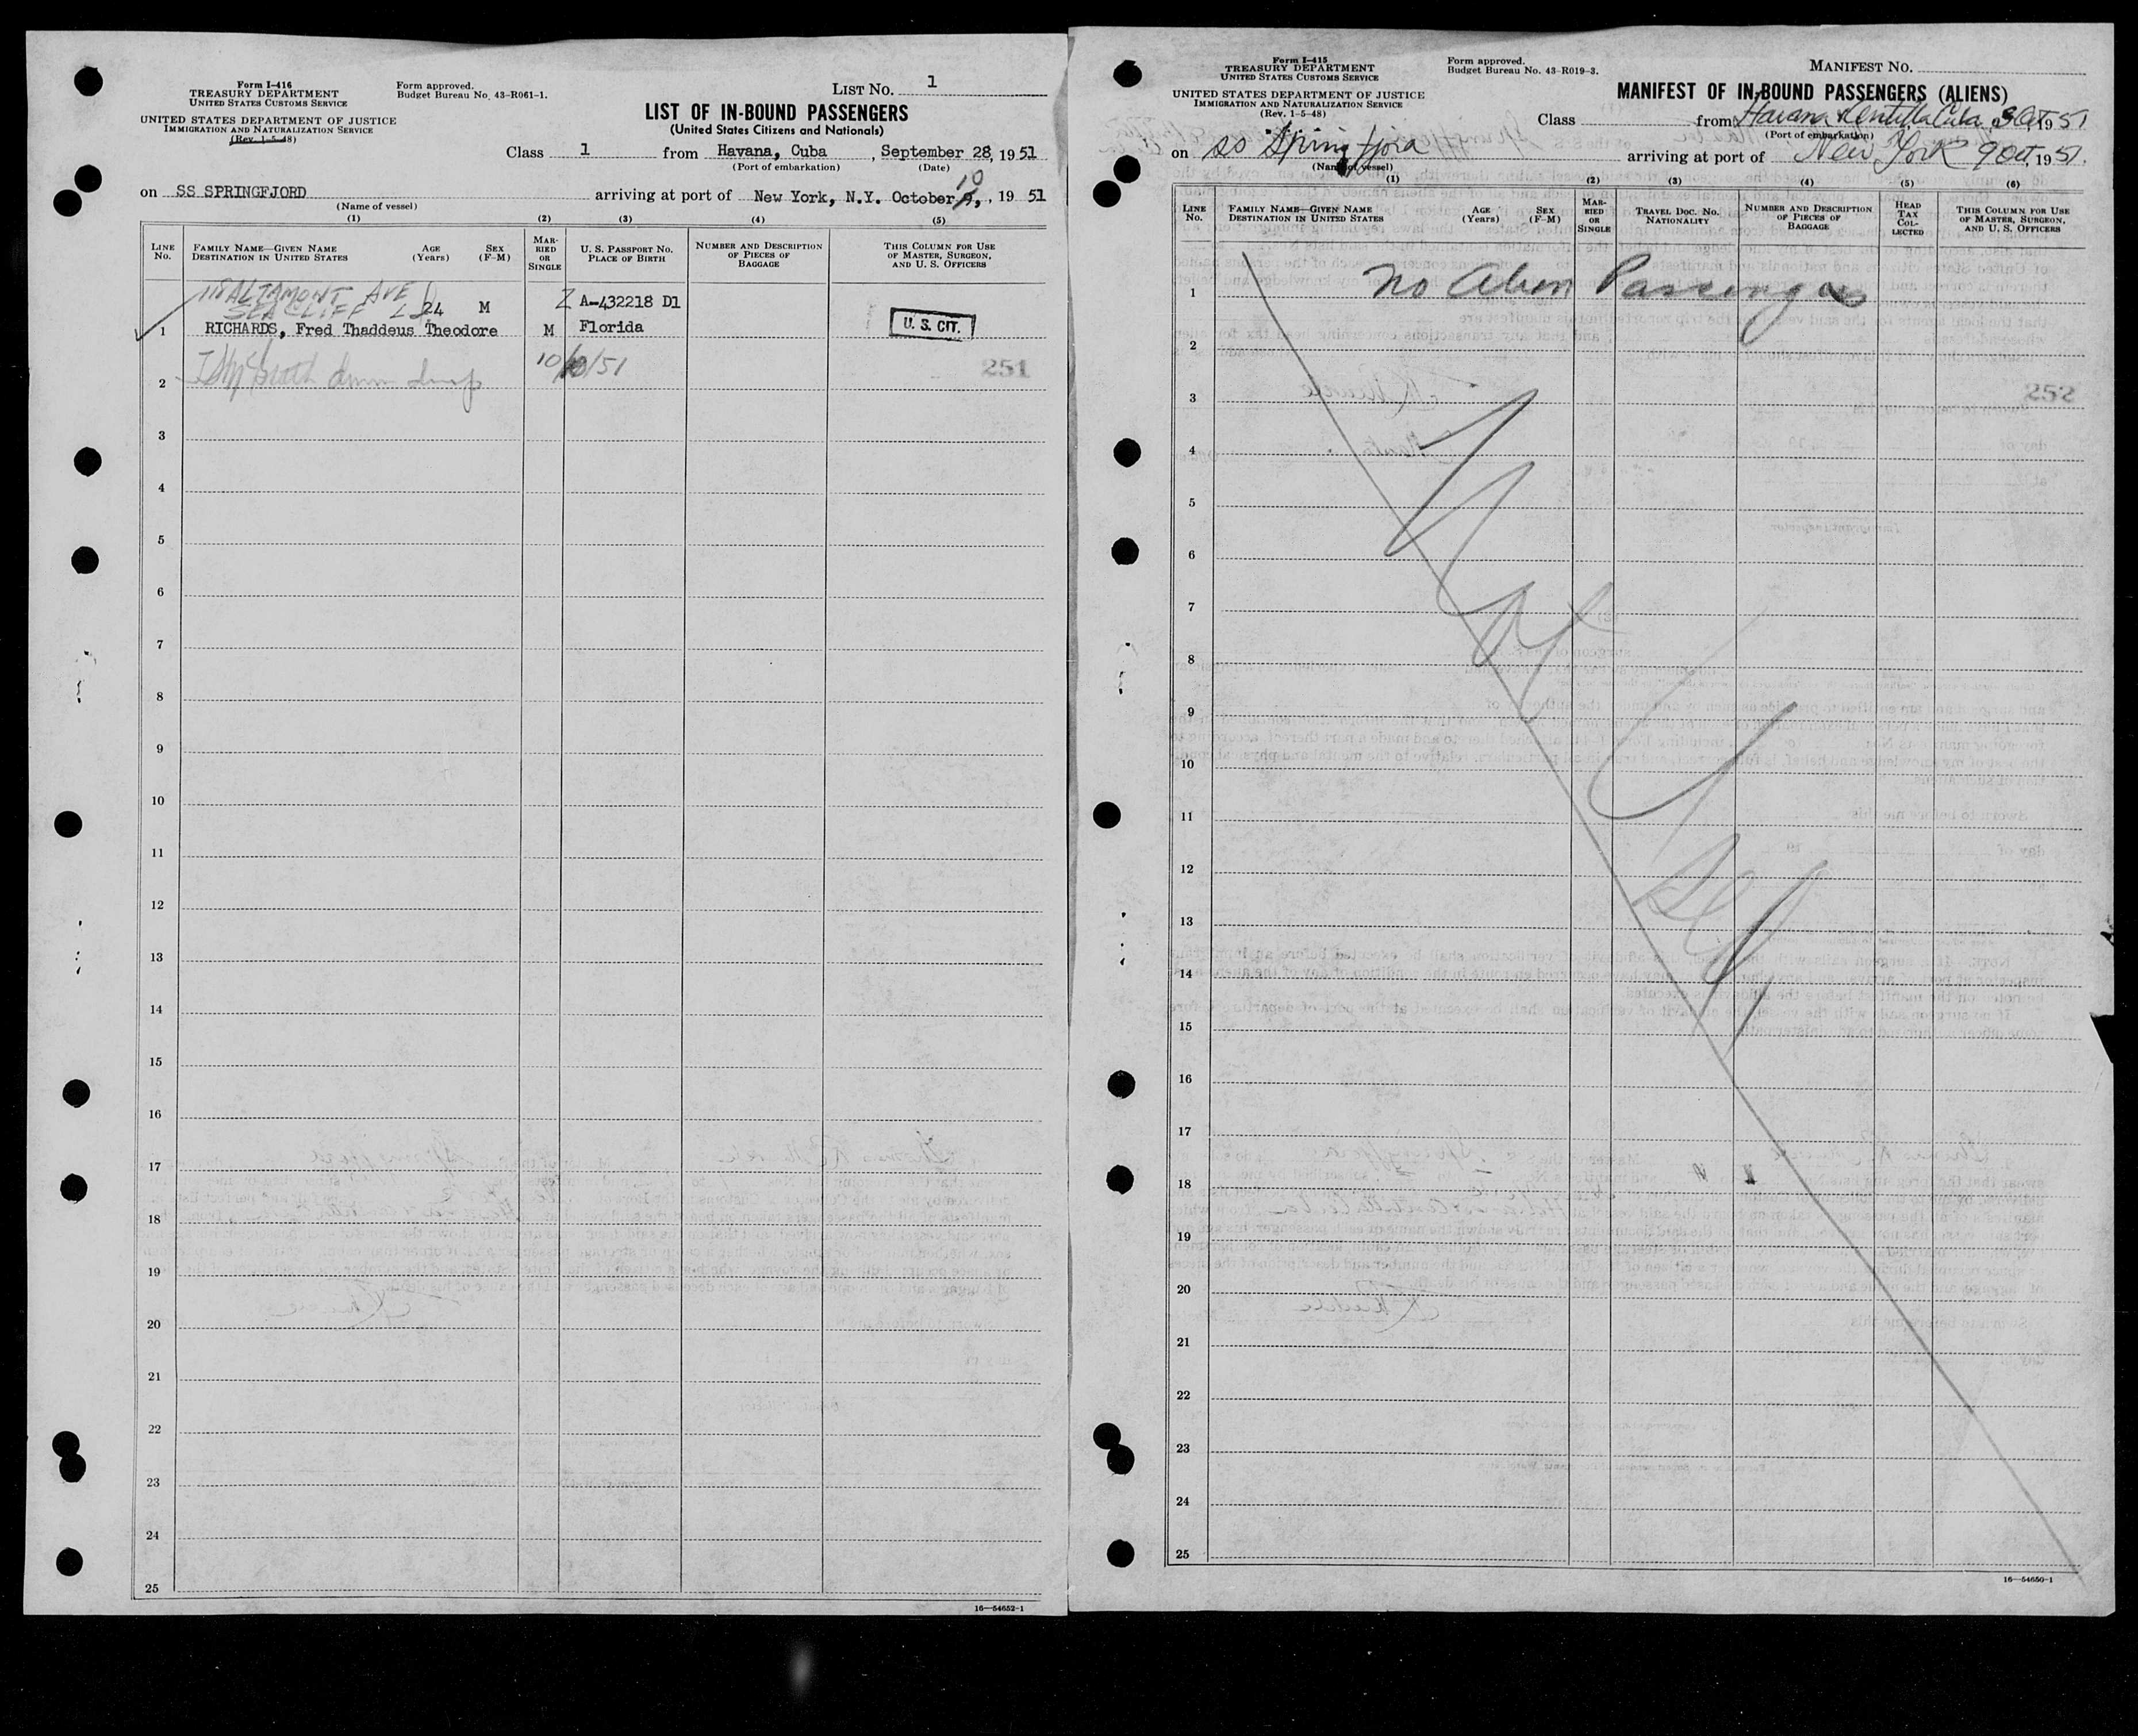 Form I-416
TREASURY DEPARTMENT
UNITED STATES CUSTOMS SERVICE
UNITED STATES DEPARTMENT OF JUSTICE
IMMIGRATION AND NATURALIZATION SERVICE
(Rev. 1-5-48)
Form approved.
Budget Bureau No. 43-R061-1.
LIST No. 1
LIST OF IN-BOUND PASSENGERS
(United States Citizens and Nationals)
Class 1 from Havana, Cuba, September 28, 1951
(Port of embarkation) (Date)
on SS SPRINGFJORD arriving at port of New York, N.Y. October 10, 1951
(Name of vessel)
(1) (2) (3) (4) (5)
LINE No.
FAMILY NAME—GIVEN NAME
DESTINATION IN UNITED STATES
AGE (Years)
SEX (F-M)
MARRIED OR SINGLE
U. S. PASSPORT NO.
PLACE OF BIRTH
NUMBER AND DESCRIPTION OF PIECES OF BAGGAGE
THIS COLUMN FOR USE OF MASTER, SURGEON, AND U. S. OFFICERS
ALTAMONT AVE
SEA CLIFF 24 M Z A-432218 D1
1 RICHARDS, Fred Thaddeus Theodore M Florida U. S. CIT.
10/10/51 251
2
3
4
5
6
7
8
9
10
11
12
13
14
15
16
17
18
19
20
21
22
23
24
25
16—54652-1
Form I-415
TREASURY DEPARTMENT
UNITED STATES CUSTOMS SERVICE
UNITED STATES DEPARTMENT OF JUSTICE
IMMIGRATION AND NATURALIZATION SERVICE
(Rev. 1-5-48)
Form approved.
Budget Bureau No. 43-R019-3.
MANIFEST No.
MANIFEST OF IN-BOUND PASSENGERS (ALIENS)
Class from Havana Cuba, 3 Oct 1951
(Port of embarkation)
on SS Springfjord arriving at port of New York 9 Oct, 1951.
(Name of vessel)
(1) (2) (3) (4) (5) (6)
LINE No.
FAMILY NAME—GIVEN NAME
DESTINATION IN UNITED STATES
AGE (Years)
SEX (F-M)
MARRIED OR SINGLE
TRAVEL DOC. NO.
NATIONALITY
NUMBER AND DESCRIPTION OF PIECES OF BAGGAGE
HEAD TAX COLLECTED
THIS COLUMN FOR USE OF MASTER, SURGEON, AND U. S. OFFICERS
1 No Alien Passengers
2
252
3
4
5
6
7
8
9
10
11
12
13
14
15
16
17
18
19
20
21
22
23
24
25
16—54650-1